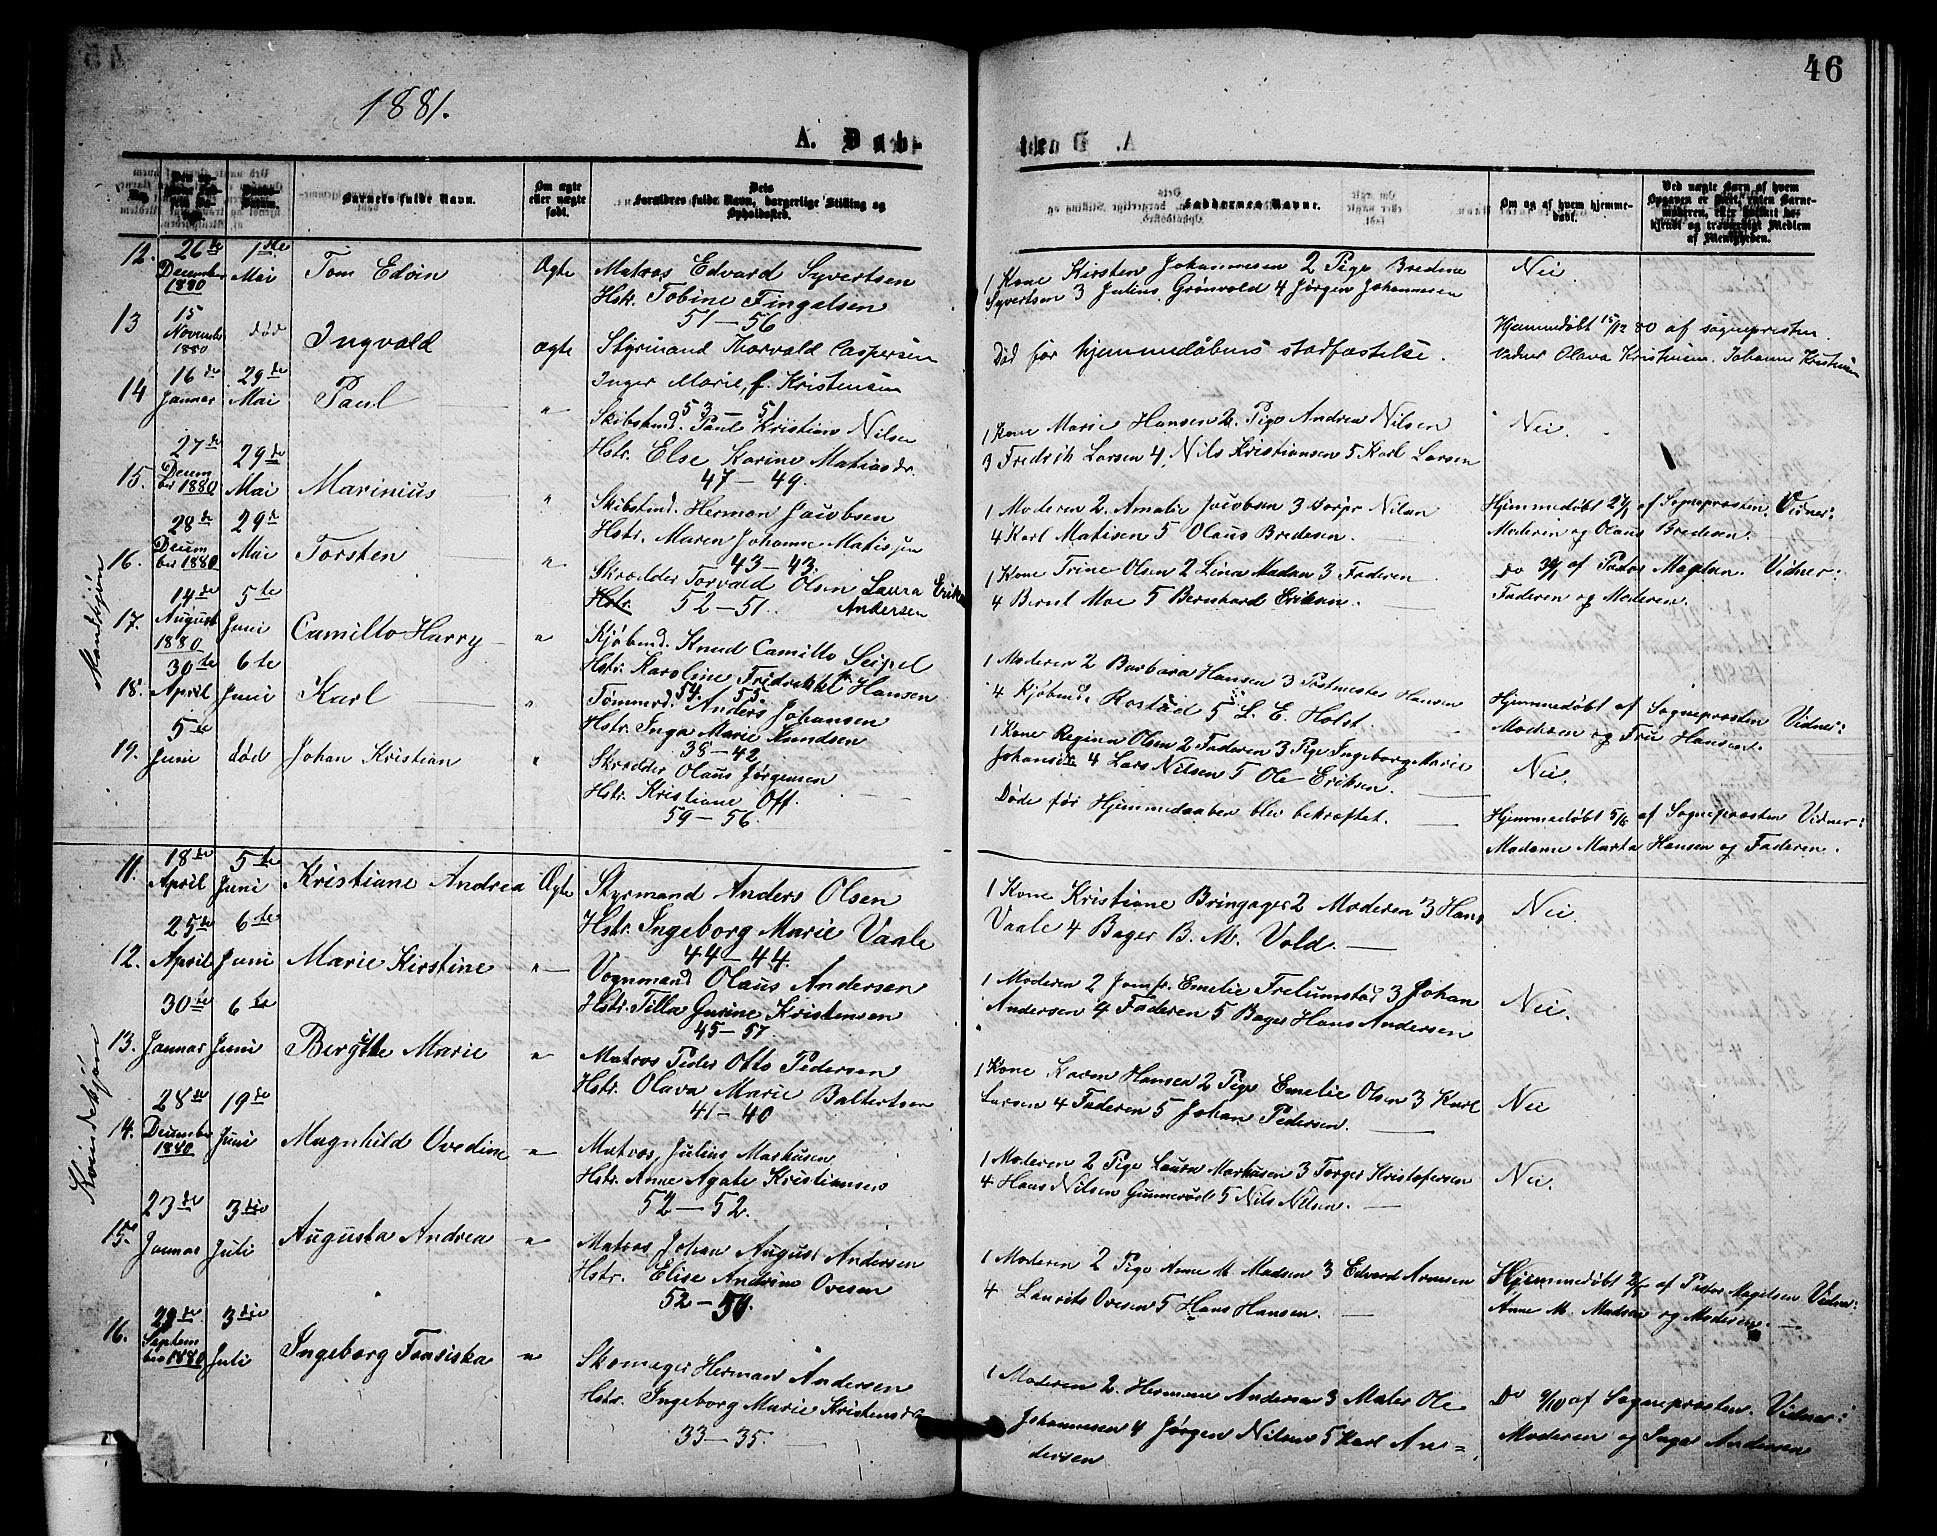 46
1881.
A. Døbte
No.
Barnets fulde Navn.
Om ægte eller uægte født.
Dets Forældres fulde Navn, borgerlige Stilling og Opholdssted.
Faddernes Navne.
Om og af hvem hjemmedøbt.
Mandkjøn
12. 26de December 1880 1ste Mai Tom Edvin Ægte Matros Edvard Syvertsen
Hstr. Tobine Fingalsen
51–56
1 Kone Kirsten Johannesen 2 Pige Bredine
Syvertsen 3 Julius Grønvold 4 Jørgen Johannesen
Nei
13 15 November 1880 død Ingvald Ægte Styrmand Thorvald Caspersen
Inger Marie, f. Kristensen
53–51
Død før hjemmedåbens stadfæstelse.
Hjemmedøbt 15/12 80 af sognepresten.
Vidner Olava Kristensen. Johanne Kristensen
14 16de Januar 29de Mai Paul " Skibstmd. Paul Kristian Nilsen
Hstr. Else Karine Matiasdr.
47–49.
1 Kone Marie Hansen 2. Pige Andrea Nilsen
3 Fredrik Larsen 4. Nils Kristiansen 5 Karl Larsen
Nei.
15. 27de December 1880 29de Mai Marinius " Skibstmd. Herman Jacobsen
Hstr. Maren Johanne Matisen
43–43.
1 Moderen 2. Amalie Jacobsen 3 Nilsen
4 Karl Matisen 5 Olaus Bredesen.
Hjemmedøbt af Sogneprøsten. Vidner:
Moderen og Olaus Bredesen.
16. 28de December 1880 29de Mai Torsten " Skrædder Torvald Olsen Laura
Hstr. 52–51. Andersen
1 Kone Trine Olsen 2 Lina Madsen 3 Faderen
4 Bernt Moe 5 Bernhard Eriksen.
Do af Vidner:
Faderen og Moderen.
17. 14de August 1880 5te Juni Camillo Harry " Kjøbmd. Knud Camillo Seipel
Hstr. Karoline Fredrikke Hansen
54. 55
1 Moderen 2 Barbara Hansen 3 Postmester Hansen
4 Kjøbmd. 5 L. E. Holst.
Hjemmedøbt af Sogneprøsten Vidner:
Moderen og Fru Hansen.
18. 30te April 6te Juni Karl " Tømmerd. Anders Johansen
Hstr. Inga Marie Knudsen
38–42
1 Kone Regina Olsen 2 Faderen 3 Pige Ingeborg Marie
Johansdr 4 Lars Nilsen 5 Ole Eriksen.
Nei.
19. 5te Juni død Johan Kristian " Skrædder Olaus Jørgensen
Hstr. Kristiane Off.
59–56.
Døde før Hjemmedaaben blev bekræftet.
Hjemmedøbt 5/6 af Sogneprøsten Vidner:
Madame Marta Hansen og Faderen.
Kvindekjøn
11. 18de April 5te Juni Kristiane Andrea Ægte Styrmand Anders Olsen
Hstr. Ingeborg Marie Vaale
44–44.
1 Kone Kristiane Bringager 2 Moderen 3 Hans
Vaale 4 Bager B. M. Vold.
Nei.
12. 25de April 6te Juni Marie Kirstine " Vognmand Olaus Andersen
Hstr. Tilla Gurine Kristensen
45–57
1 Moderen 2 Jomfr. Emelie Frelumstad 3 Johan
Andersen 4 Faderen 5 Bager Hans Andersen
Nei.
13. 30te Januar 6te Juni Bergitte Marie " Matros Peder Otto Pedersen
Hstr. Olava Marie Baltertsen
41–40
1 Kone Karen Hansen 2 Pige Emelie Olsen 3 Karl
Larsen 4 Faderen 5 Johan Pedersen.
Nei
14. 28de December 1880 19de Juni Magnhild Ovedine " Matros, Julius Markusen
Hstr. Anne Agate Kristiansen
52–52.
1 Moderen 2 Pige Laura Markusen 3 Torger Kristofersen
4 Hans Nilsen Gunnerød 5 Nils Nilsen.
Nei.
15. 23de Januar 3die Juli Augusta Andrea " Matros Johan August Andersen
Hstr. Elise Andrine Ovesen
52–50.
1 Moderen 2 Pige Anne M. Madsen 3 Edvard Arnesen
4 Laurits Ovesen 5 Hans Hansen.
Hjemmedøbt af Vidner:
Anne M. Madsen og Moderen.
16. September 1880 3die Juli Ingeborg Fransiska " Skomager Herman Andersen
Hstr. Ingeborg Marie Kristensdr
33–35.
1 Moderen 2. Hermine Andersen 3 Mates Ole
Johannesen 4 Jørgen Nilsen 5 Karl An=
dersen
Do af Sogneprøsten. Vidner:
Moderen og Inga Andersen